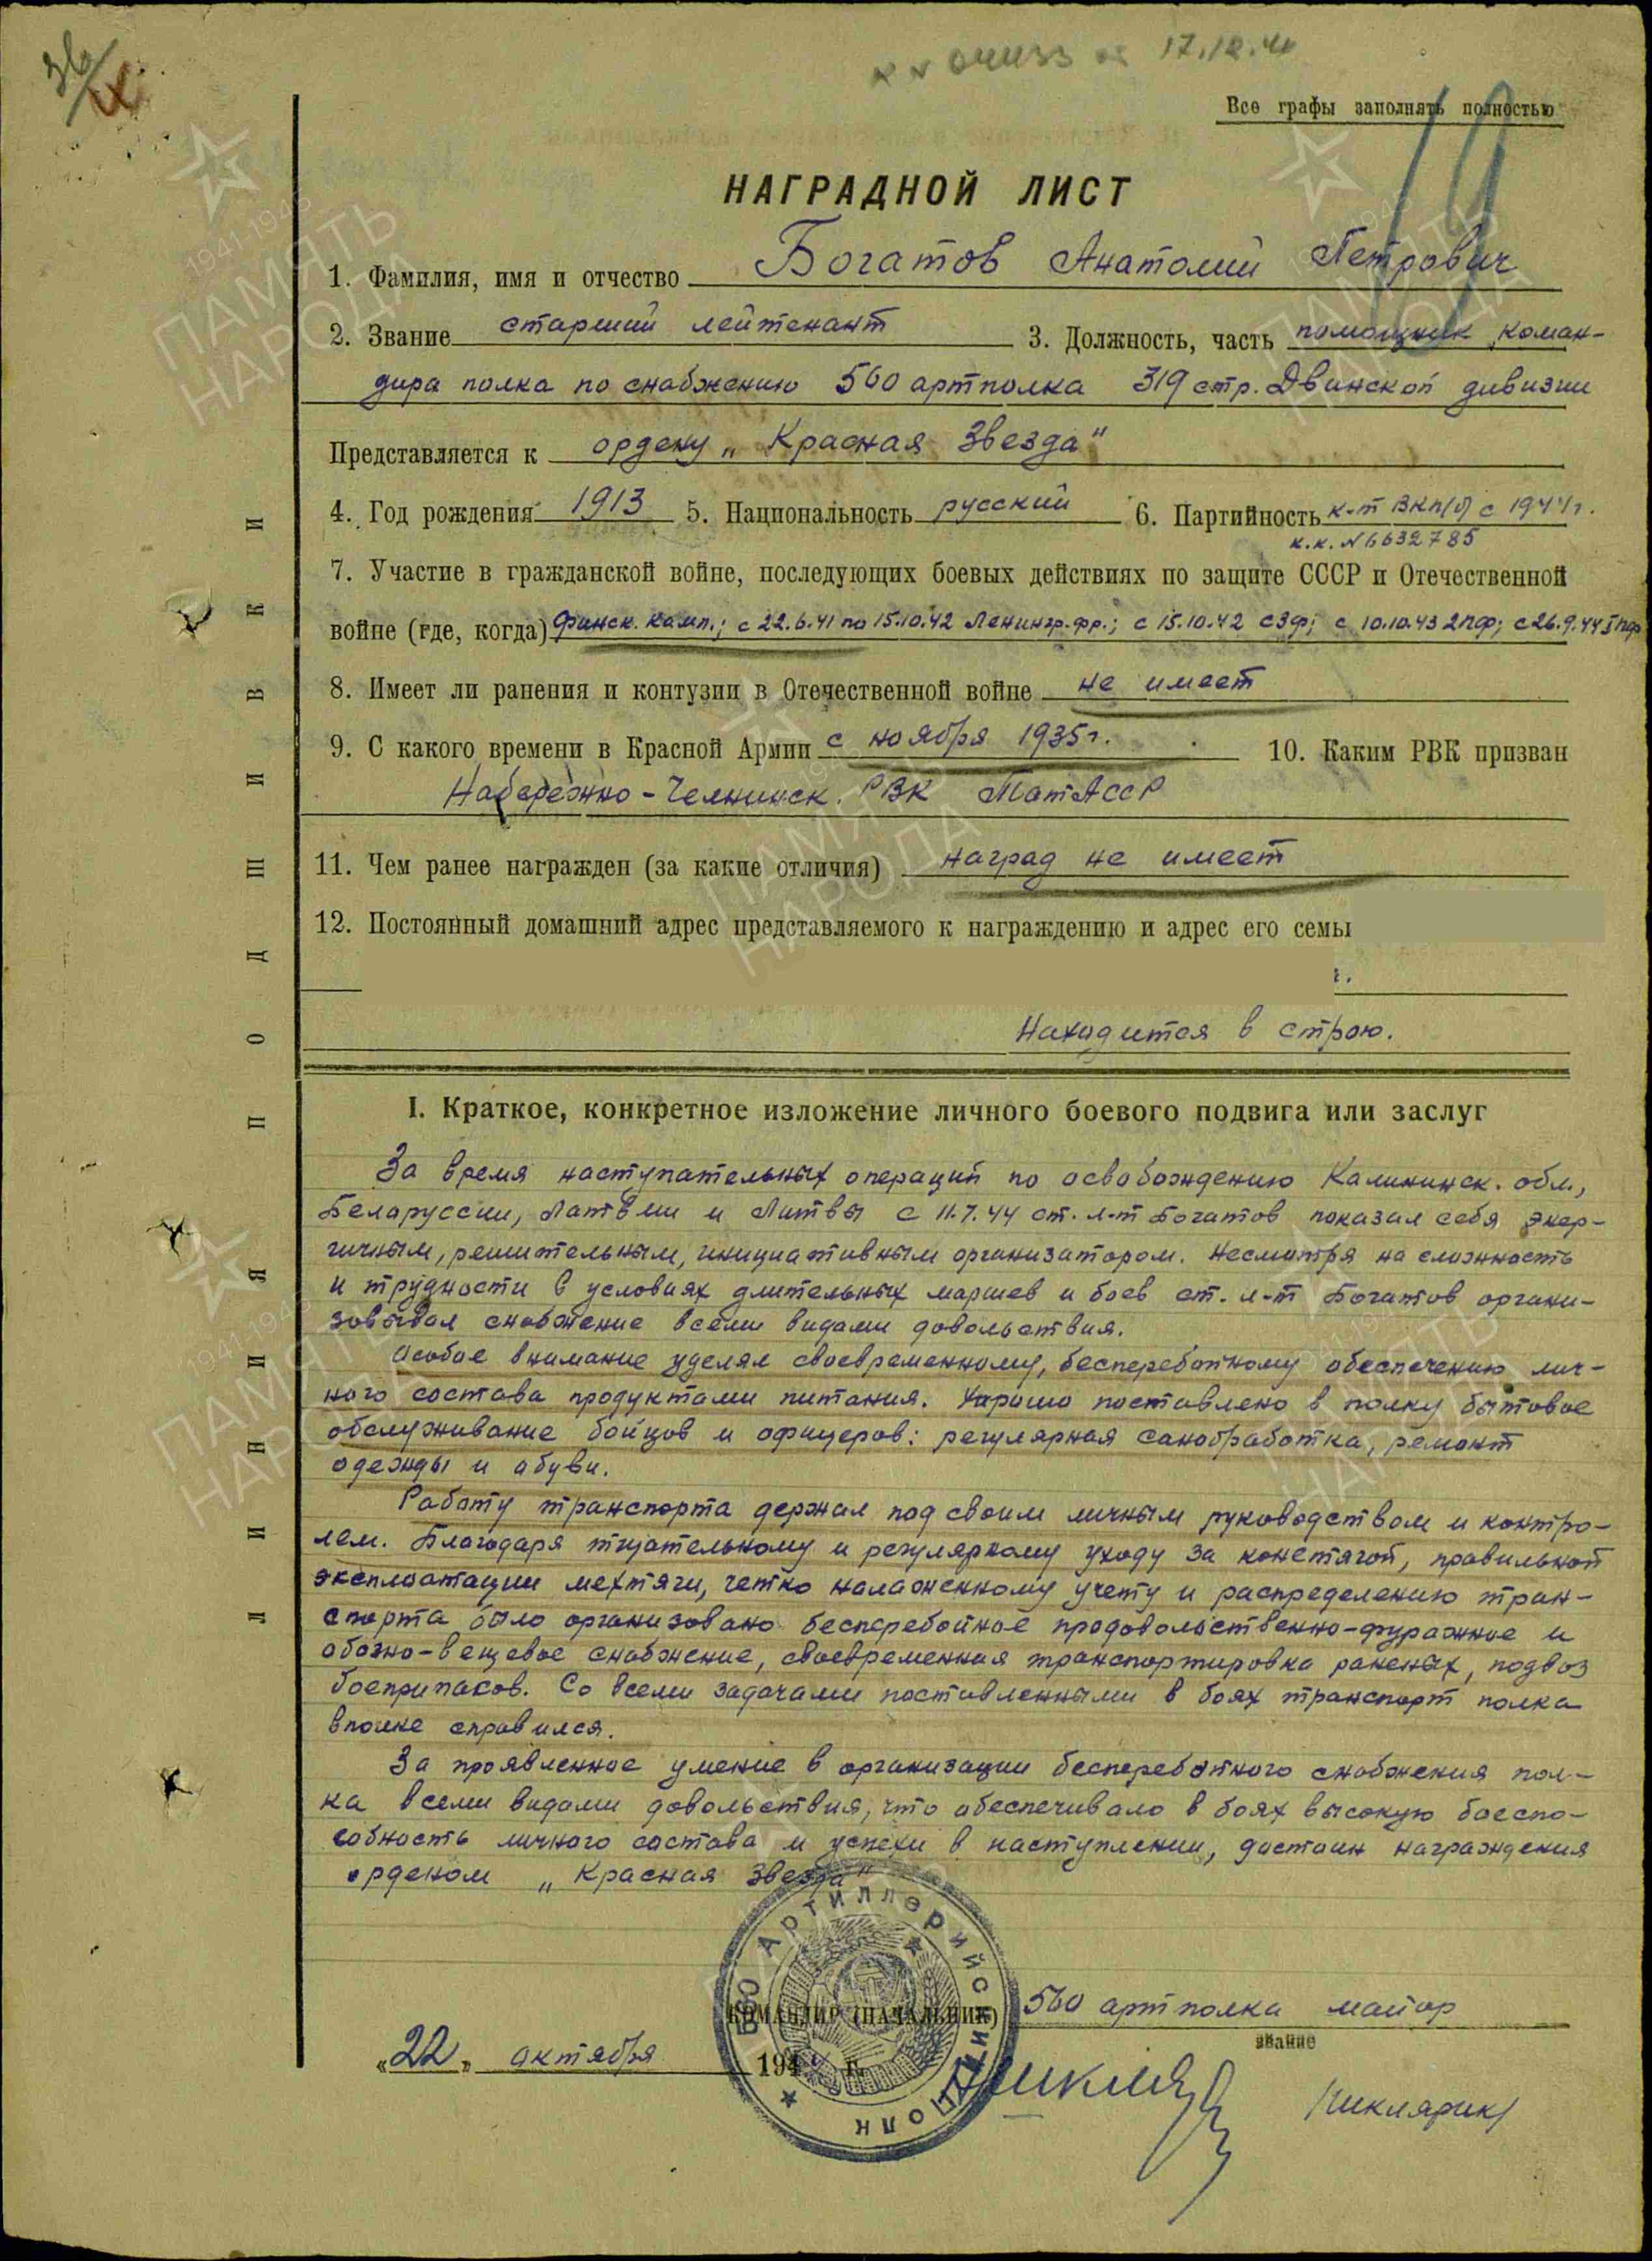 17.12.44
Все графы заполнять полностью
19
НАГРАДНОЙ ЛИСТ
1. Фамилия, имя и отчество Богатов Анатолий Петрович
2. Звание старший лейтенант 3. Должность, часть помощник коман-
дира полка по снабжению 560 артполка 319 стр. Двинской дивизии
Представляется к ордену „Красная Звезда"
4. Год рождения 1913 5. Национальность русский 6. Партийность к-т ВКП(б) с 1944 г.
к.к. № 6632785
7. Участие в гражданской войне, последующих боевых действиях по защите СССР и Отечественной
войне (где, когда) Финск. камп.; с 22.6.41 по 15.10.42 Ленингр. фр.; с 15.10.42 СЗФ; с 10.10.43 2ПФ; с 26.9.44 I ПФ
8. Имеет ли ранения и контузии в Отечественной войне не имеет
9. С какого времени в Красной Армии с ноября 1935 г. 10. Каким РВК призван
Набережно-Челнинск. РВК ТатАССР
11. Чем ранее награжден (за какие отличия) наград не имеет
12. Постоянный домашний адрес представляемого к награждению и адрес его семьи
Находится в строю.
ЛИНИЯ ПОДШИВКИ
I. Краткое, конкретное изложение личного боевого подвига или заслуг
За время наступательных операций по освобождению Калининск. обл.,
Беларуссии, Латвии и Литвы с 11.7.44 ст. л-т Богатов показал себя энер-
гичным, решительным, инициативным организатором. Несмотря на сложность
и трудности в условиях длительных маршев и боев ст. л-т Богатов органи-
зовывал снабжение всеми видами довольствия.
Особое внимание уделял своевременному, бесперебойному обеспечению лич-
ного состава продуктами питания. Хорошо поставлено в полку бытовое
обслуживание бойцов и офицеров: регулярная санобработка, ремонт
одежды и обуви.
Работу транспорта держал под своим личным руководством и контро-
лем. Благодаря тщательному и регулярному уходу за конетягой, правильной
эксплоатации мехтяги, четко налаженному учету и распределению тран-
спорта было организовано бесперебойное продовольственно-фуражное и
обозно-вещевое снабжение, своевременная транспортировка раненых, подвоз
боеприпасов. Со всеми задачами поставленными в боях транспорт полка
вполне справился.
За проявленное умение в организации бесперебойного снабжения пол-
ка всеми видами довольствия, что обеспечивало в боях высокую боеспо-
собность личного состава и успехи в наступлении, достоин награждения
орденом „Красная Звезда"
560 Артиллерийский полк
КОМАНДИР (НАЧАЛЬНИК) 560 артполка майор
звание
«22» октября 194 г.
/Шклярик/
1941-1945
ПАМЯТЬ
НАРОДА